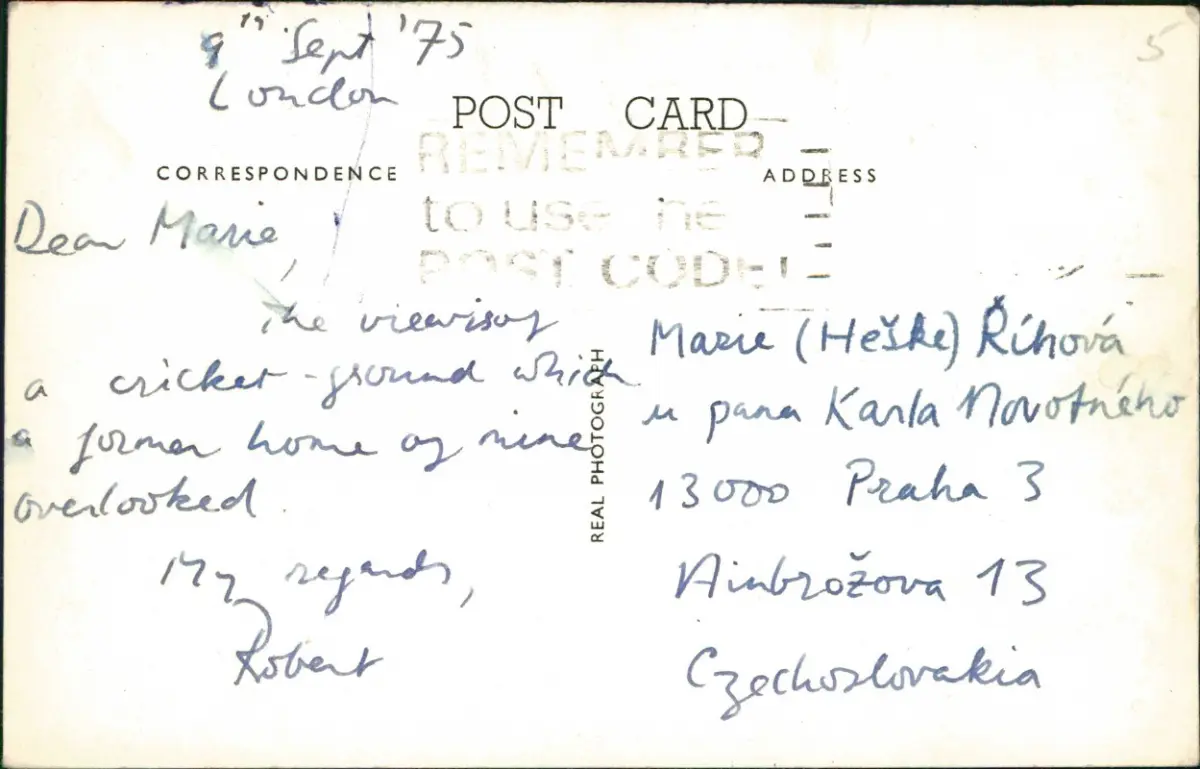 9th Sept '75
London
POST CARD
REMEMBER
to use the
POST CODE!
CORRESPONDENCE
ADDRESS
Dear Marie,
the view is of
a cricket-ground which
a former home of mine
overlooked.
My regards,
Robert
REAL PHOTOGRAPH
Marie (Heške) Říhová
u pana Karla Novotného
13000 Praha 3
Ambrožova 13
Czechoslovakia
5